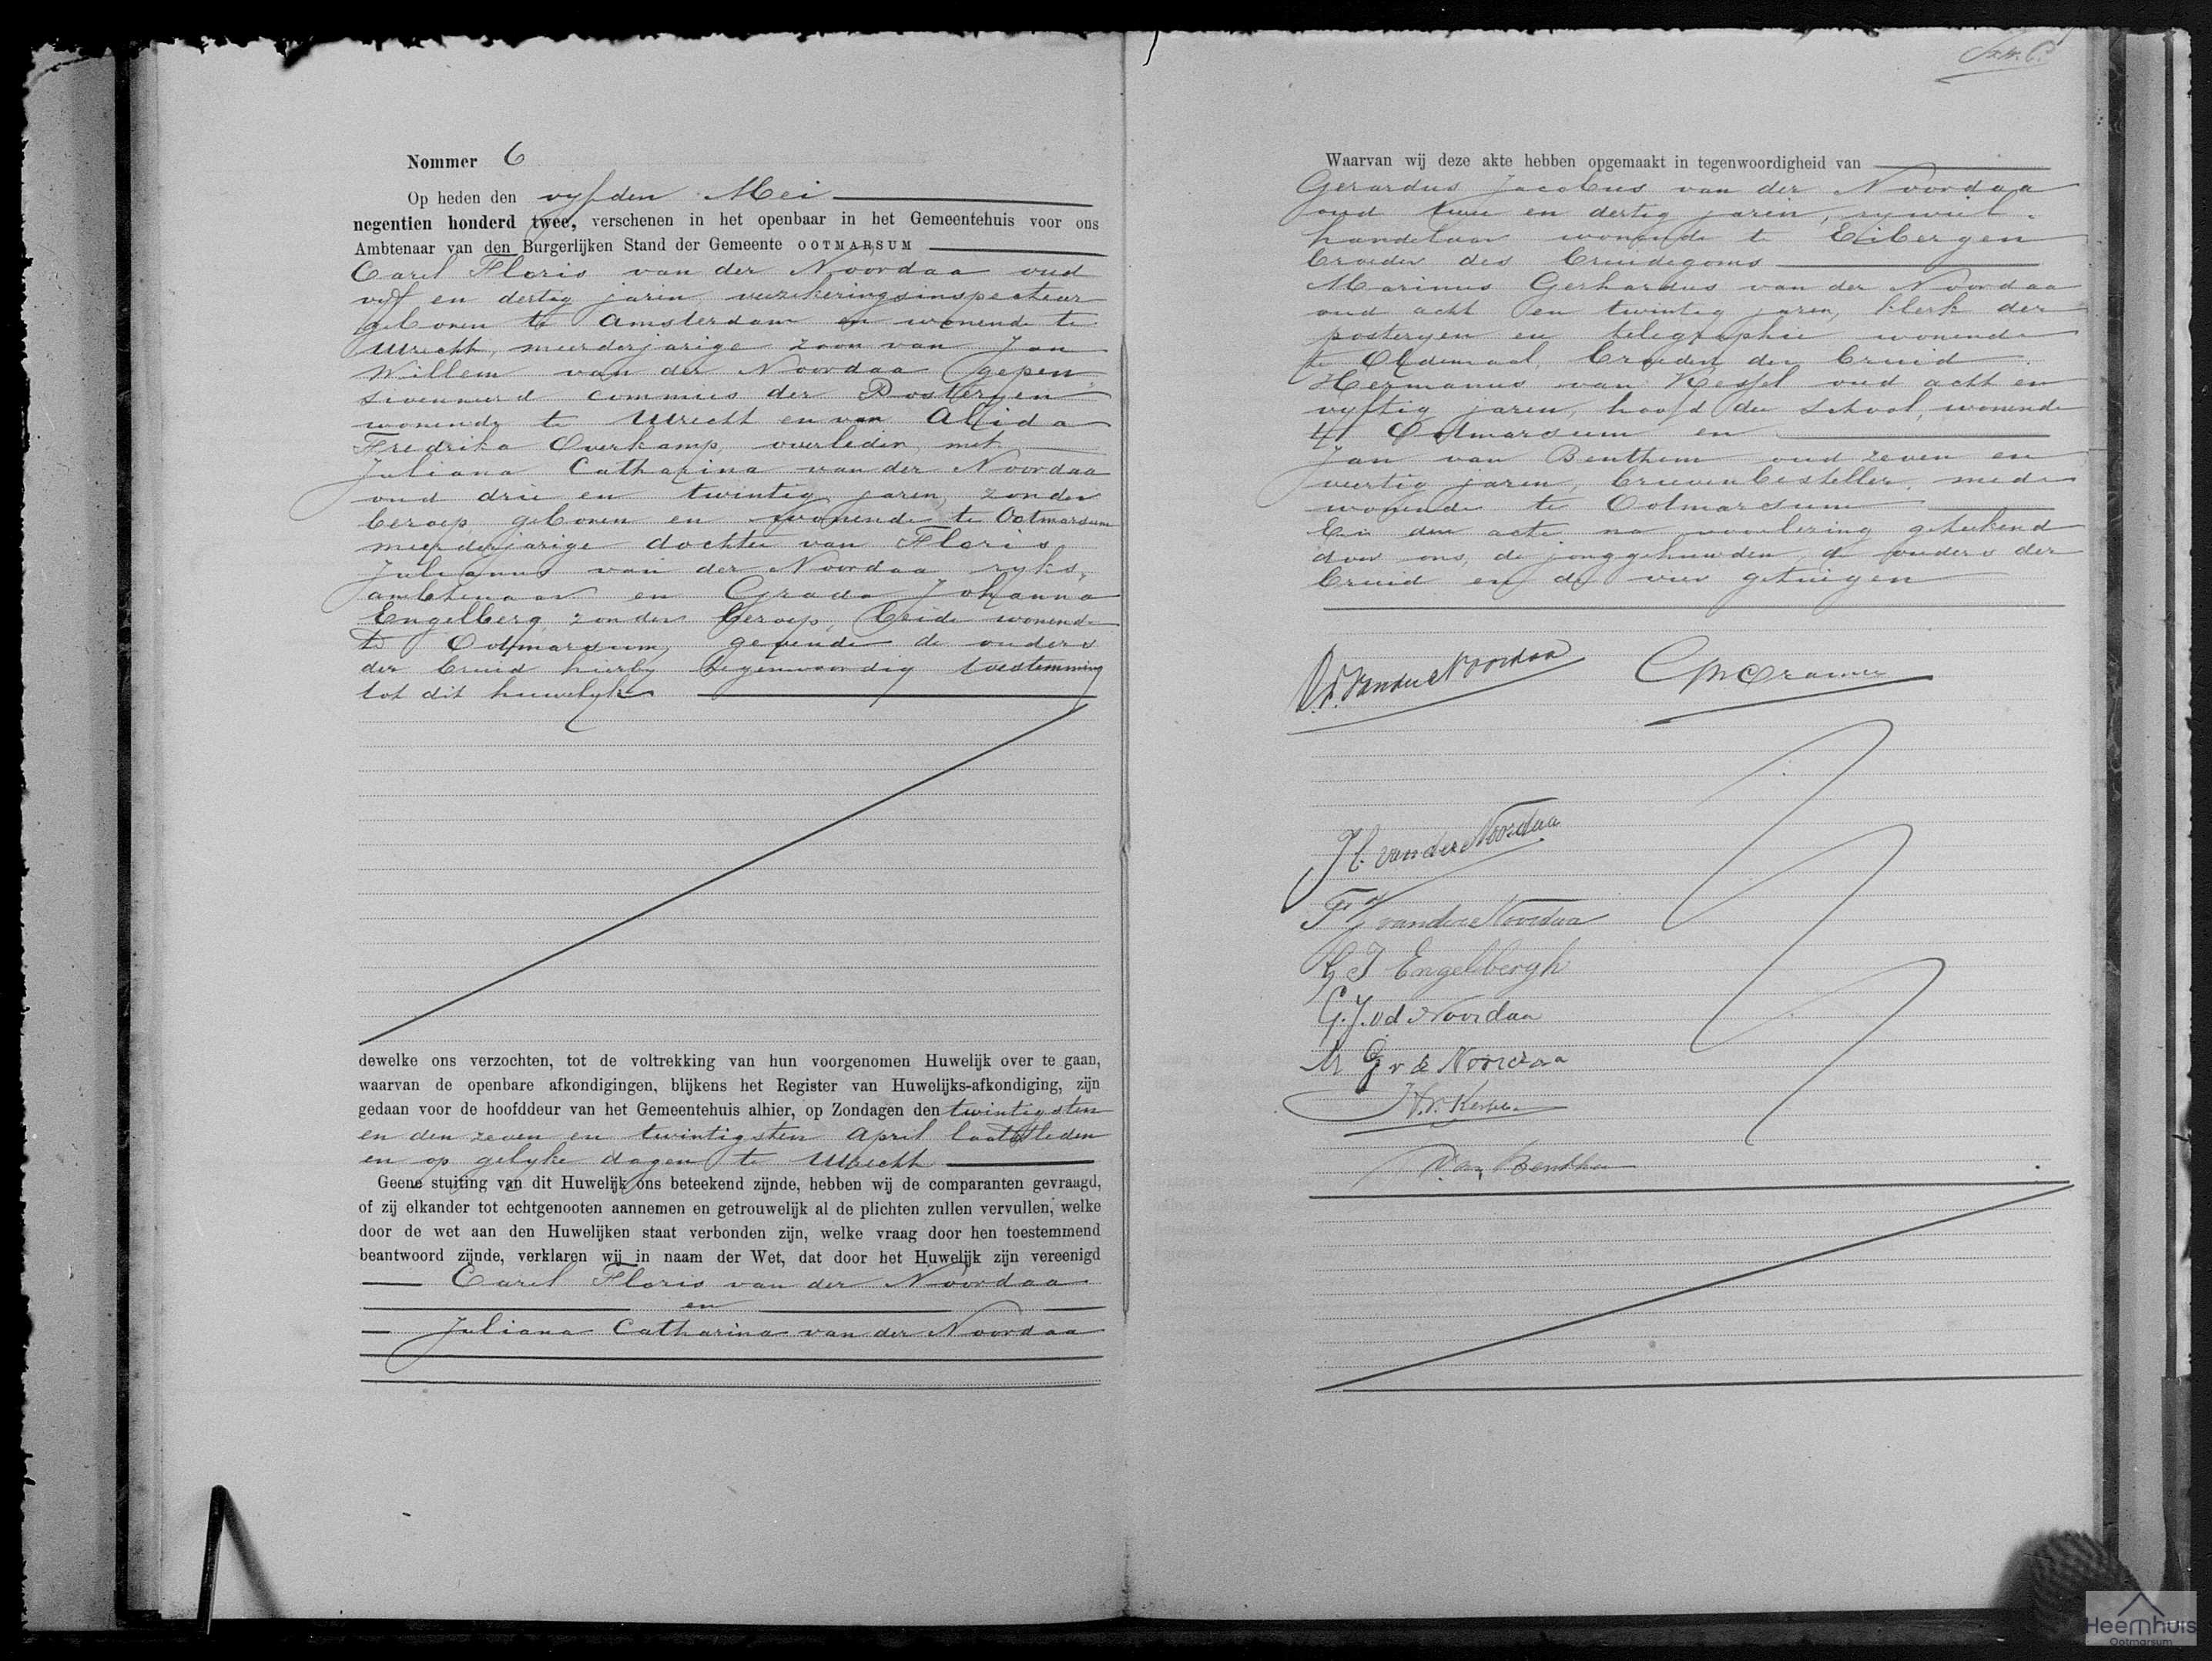 Nommer 6
Op heden den vyfden Mei
negentien honderd twee, verschenen in het openbaar in het Gemeentehuis voor ons
Ambtenaar van den Burgerlijken Stand der Gemeente OOTMARSUM
Carel Floris van der Noordaa oud
vyf en dertig jaren, verzekeringsinspecteur
geboren te Amsterdam en wonende te
Utrecht, meerderjarige zoon van Jan
Willem van der Noordaa gepen-
sionneerd commies der Posteryen
wonende te Utrecht en van Alida
Fredrika Overkamp, overleden, met
Juliana Catharina van der Noordaa
oud drie en twintig jaren, zonder
beroep geboren en wonende te Ootmarsum
meerderjarige dochter van Floris
Julianus van der Noordaa ryks-
ambtenaar en Grada Johanna
Engelberg zonder beroep, beide wonende
te Ootmarsum, gevende de ouders
der bruid hierby tegenwoordig toestemming
tot dit huwelyk
dewelke ons verzochten, tot de voltrekking van hun voorgenomen Huwelijk over te gaan,
waarvan de openbare afkondigingen, blijkens het Register van Huwelijks-afkondiging, zijn
gedaan voor de hoofddeur van het Gemeentehuis alhier, op Zondagen den twintigsten
en den zeven en twintigsten April laatstleden
en op gelyke dagen te Utrecht
Geene stuiting van dit Huwelijk ons beteekend zijnde, hebben wij de comparanten gevraagd,
of zij elkander tot echtgenooten aannemen en getrouwelijk al de plichten zullen vervullen, welke
door de wet aan den Huwelijken staat verbonden zijn, welke vraag door hen toestemmend
beantwoord zijnde, verklaren wij in naam der Wet, dat door het Huwelijk zijn vereenigd
Carel Floris van der Noordaa
en
Juliana Catharina van der Noordaa
Waarvan wij deze akte hebben opgemaakt in tegenwoordigheid van
Gerardus Jacobus van der Noordaa
oud twee en dertig jaren, rywiel-
handelaar wonende te Eibergen
broeder des bruidegoms
Marinus Gerhardus van der Noordaa
oud acht en twintig jaren, klerk der
posteryen en telegraphie wonende
te Oldenzaal, broeder der bruid
Hermanus van Kessel oud acht en
vyftig jaren, hoofd der school, wonende
te Ootmarsum en
Jan van Benthem oud zeven en
veertig jaren, brievenbesteller, mede
wonende te Ootmarsum
En is deze acte na voorlezing geteekend
door ons, de jonggehuwden, de ouders der
bruid en de vier getuigen
C.F. van der Noordaa
J.C. van der Noordaa
F J van der Noordaa
G J Engelbergh
G. J. v d Noordaa
M G v d Noordaa
H. v. Kessel
J. van Benthem
Heemhuis
Ootmarsum